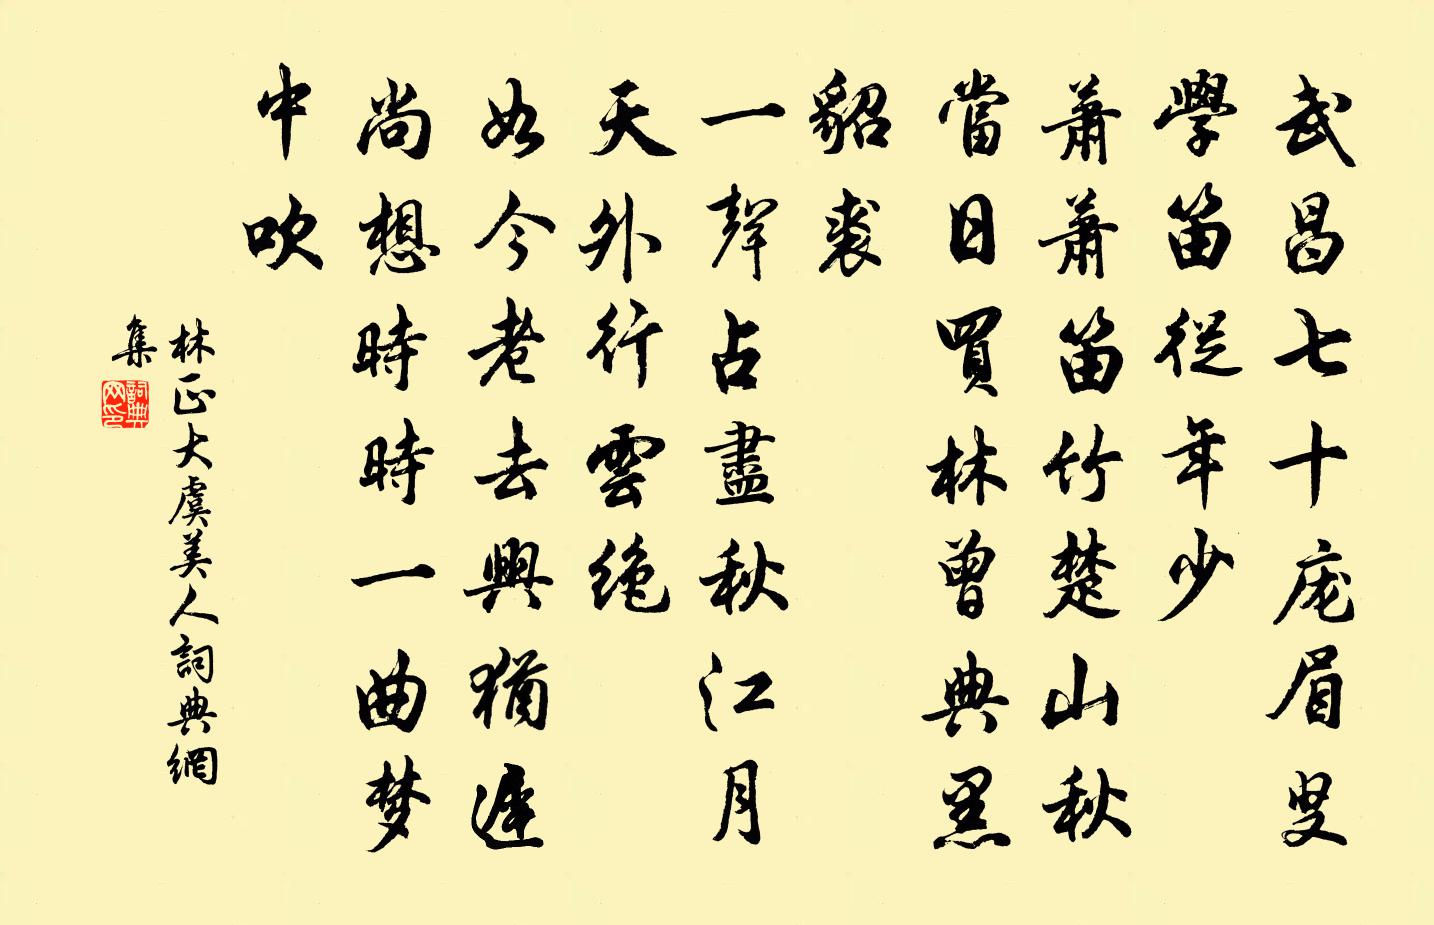 武昌七十庬眉叟
學笛從年少
蕭蕭笛竹楚山秋
當日買林曾典黑
貂裘
一聲占盡秋江月
天外行雲絶
如今老去興猶遲
尚想時時一曲梦
中吹
林正大虞美人詞典網
集
詞典
网印